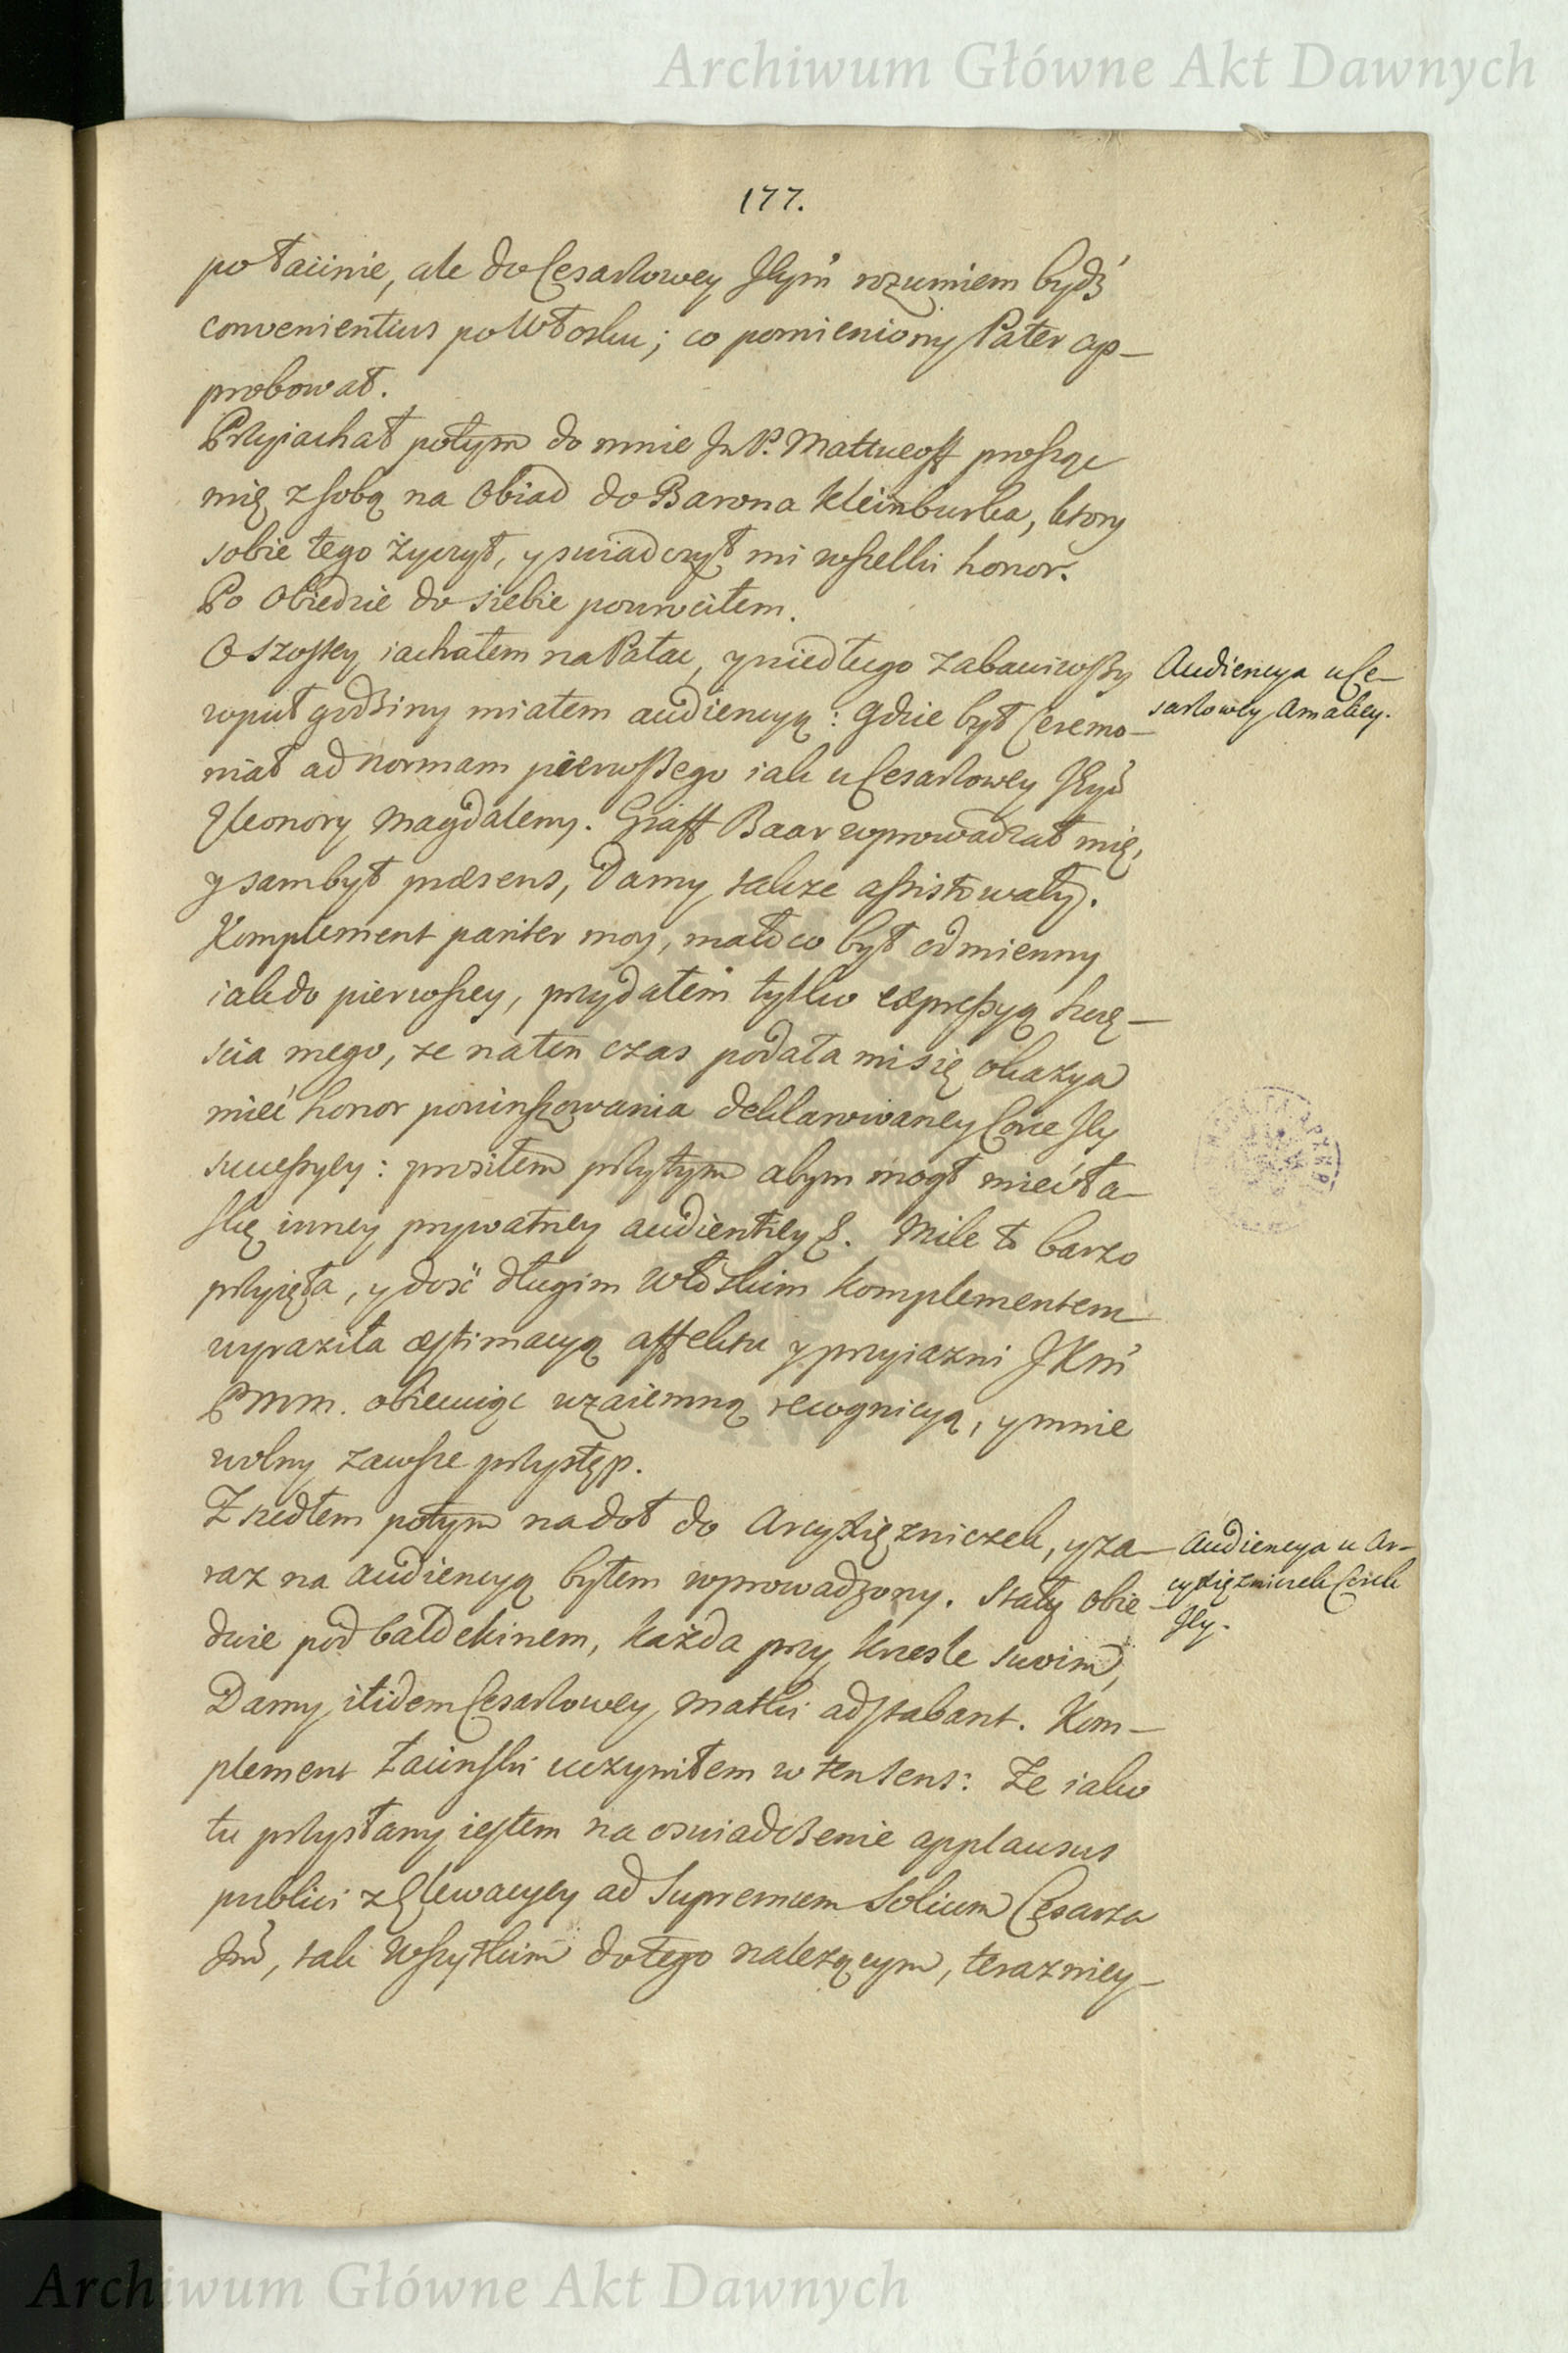 Archiwum Główne Akt Dawnych
177.
po łacinie, ale do Cesarzowey Jeym rozumiem bydź
convenientius po Włosku; co pomieniony Pater ap-
probował.
Przyjachał potym do mnie Jn P. Mattueoff prosząc
mię z sobą na Obiad do Barona Kleinburka, ktory
sobie tego życzył, y swiadczył mi wszelki honor.
Po Obiedzie do siebie powrociłem.
O szostey iachałem na Pałac, y niedługo zabawiwszy
Audiencya u Ce-
wpuł godziny miałem audiencyą: gdzie był Ceremo-
sarzowey Amaliey.
niał ad normam pierwszego iak u Cesarzowey Jeyḿ
Eleonory Magdaleny. Graff Baar wprowadzał mię,
y sam był præsens, Damy także assistowały.
Komplement pariter moy, mało co był odmienny
iak do pierwszey, przydałem tylko expressyą szczę-
scia mego, ze na ten czas podała mi się okazya
mieć honor powinszowania deklarowaney Corce Jey
sucessyey: prosiłem przytym abym mogł mieć ła-
skę inney prywatney audientiey &. Mile to barzo
przyięła, y dość długim Włoskim komplementem
wyraziła æstimacyą affektu y przyiazni JKḿ
PMM. obiecuiąc wzaiemną recognicyą, y mnie
wolny zawsze przystęp.
Zszedłem potym na doł do Arcyxiężniczek, y za-
Audiencya u Ar-
raz na audiencyą byłem wprowadzony. Stały obie
cyxiężniczek Corek
dwie pod baldekinem, każda przy krzesle swoim,
Jey.
Damy itidem Cesarzowey Matki adstabant. Kom-
plement Łacinski uczyniłem w ten sens: Ze iako
tu przysłany iestem na oswiadczenie applausus
publici z Elewacyey ad Supremum Solium Cesarza
Jmḿ, tak wszystkim do tego nalezącym, terazniey-
Archiwum Główne Akt Dawnych